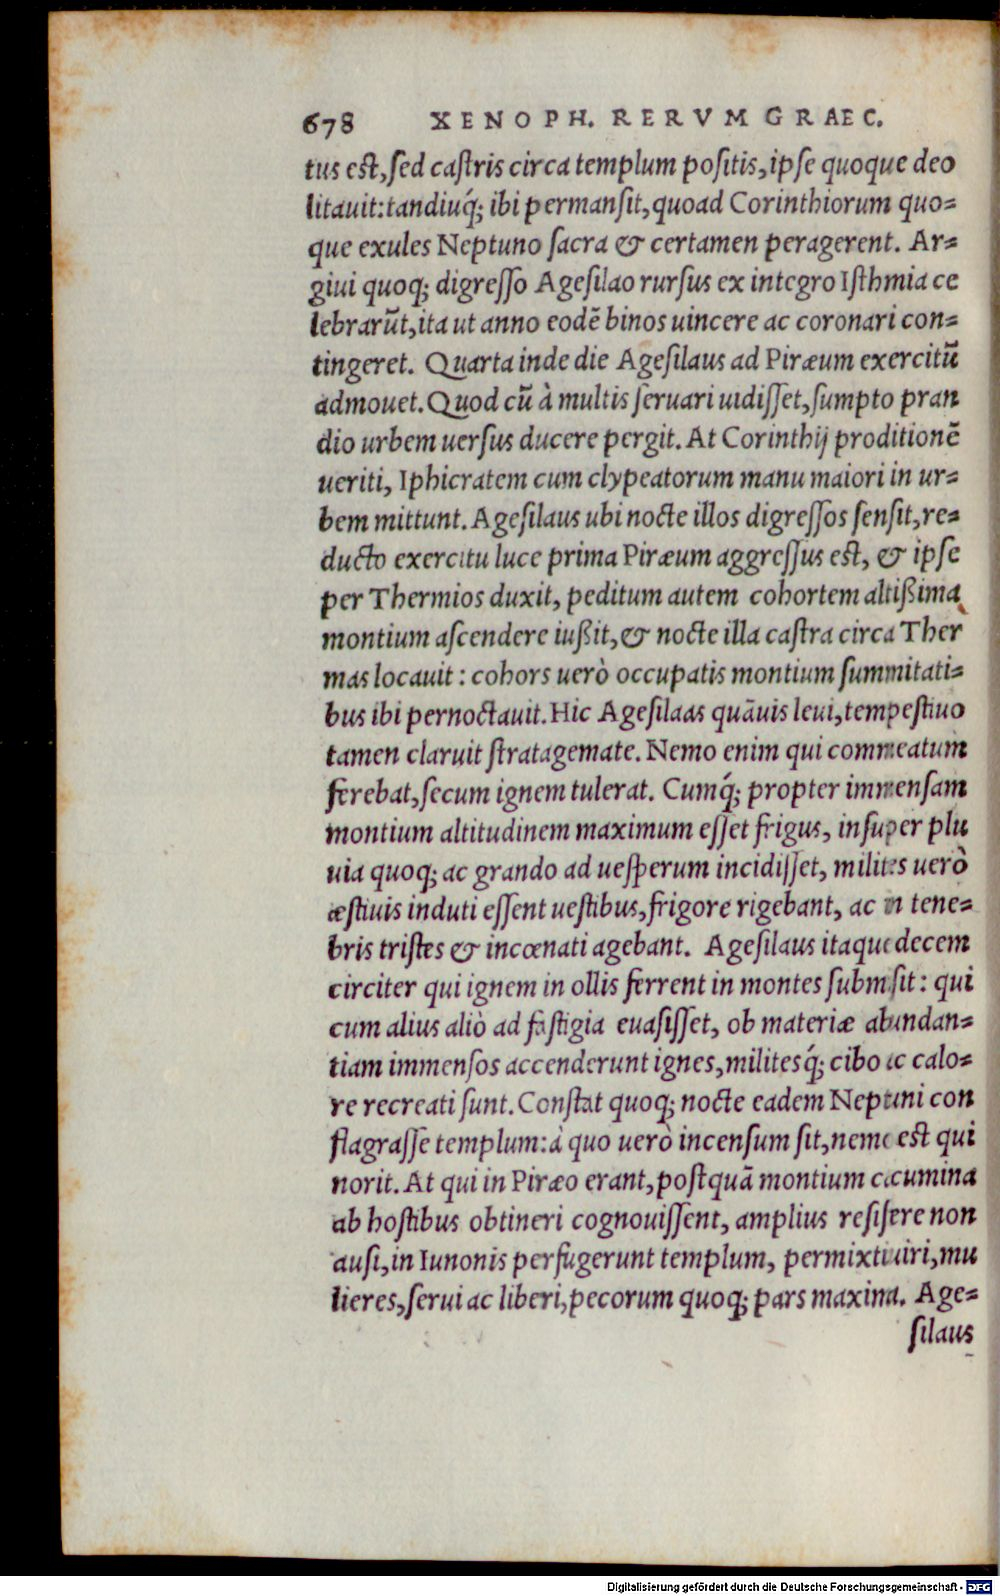 678 XENOPH. RERVM GRAEC.
tus est, sed castris circa templum positis, ipse quoque deo
litauit: tandiuq́; ibi permansit, quoad Corinthiorum quo=
que exules Neptuno sacra & certamen peragerent. Ar=
giui quoq; digresso Agesilao rursus ex integro Isthmia ce
lebrarũt, ita ut anno eodẽ binos uincere ac coronari con=
tingeret. Quarta inde die Agesilaus ad Piræum exercitũ
admouet. Quod cũ à multis seruari uidisset, sumpto pran
dio urbem uersus ducere pergit. At Corinthij proditionẽ
ueriti, Iphicratem cum clypeatorum manu maiori in ur=
bem mittunt. Agesilaus ubi nocte illos digressos sensit, re=
ducto exercitu luce prima Piræum aggressus est, & ipse
per Thermios duxit, peditum autem cohortem altißima
montium ascendere iußit, & nocte illa castra circa Ther
mas locauit : cohors uerò occupatis montium summitati=
bus ibi pernoctauit. Hic Agesilaas quãuis leui, tempestiuo
tamen claruit stratagemate. Nemo enim qui commeatum
ferebat, secum ignem tulerat. Cumq́; propter immensam
montium altitudinem maximum esset frigus, insuper plu
uia quoq; ac grando ad uesperum incidisset, milites uerò
æstiuis induti essent uestibus, frigore rigebant, ac in tene=
bris tristes & incœnati agebant. Agesilaus itaque decem
circiter qui ignem in ollis ferrent in montes submisit : qui
cum alius aliò ad fastigia euasisset, ob materiæ abundan=
tiam immensos accenderunt ignes, militesq́; cibo ac calo=
re recreati sunt. Constat quoq; nocte eadem Neptuni con
flagrasse templum: à quo uerò incensum sit, nemo est qui
norit. At qui in Piræo erant, postquã montium cacumina
ab hostibus obtineri cognouissent, amplius resistere non
ausi, in Iunonis perfugerunt templum, permixti uiri, mu
lieres, serui ac liberi, pecorum quoq; pars maxima. Age=
silaus
Digitalisierung gefördert durch die Deutsche Forschungsgemeinschaft - DFG